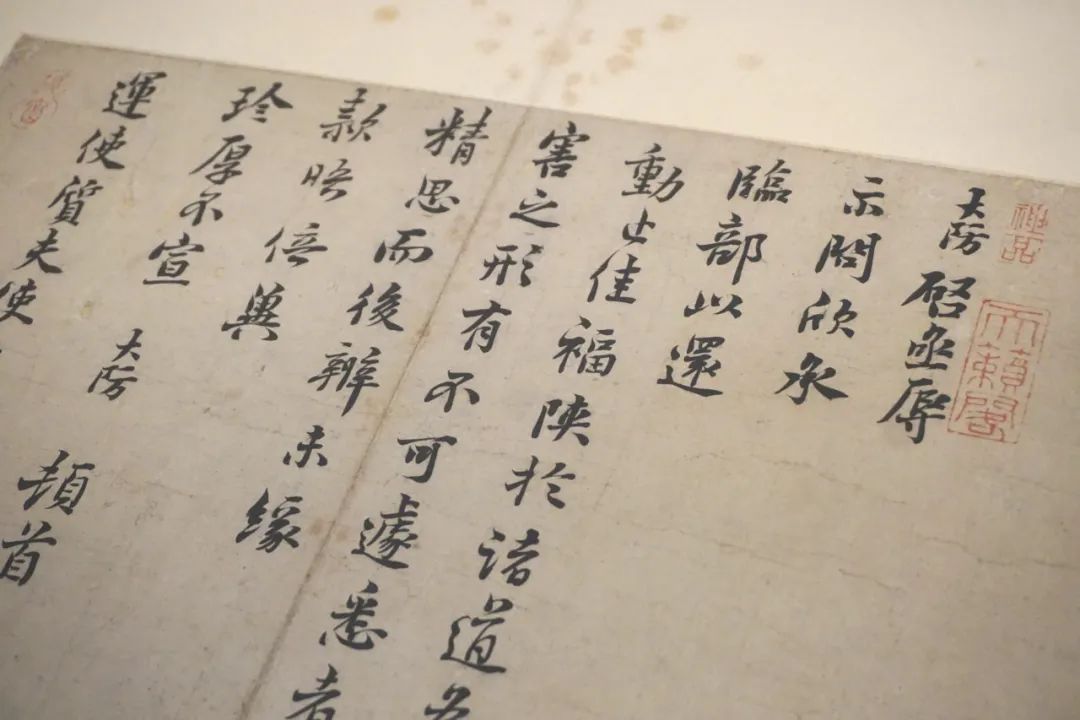 大防啓亟辱
示問欣承
臨部以還
動止佳福陝於諸道
害之形有不可遽悉者
精思而後辦未緣
款晤倍冀
珍厚不宣
大防 頓首
運使質夫使